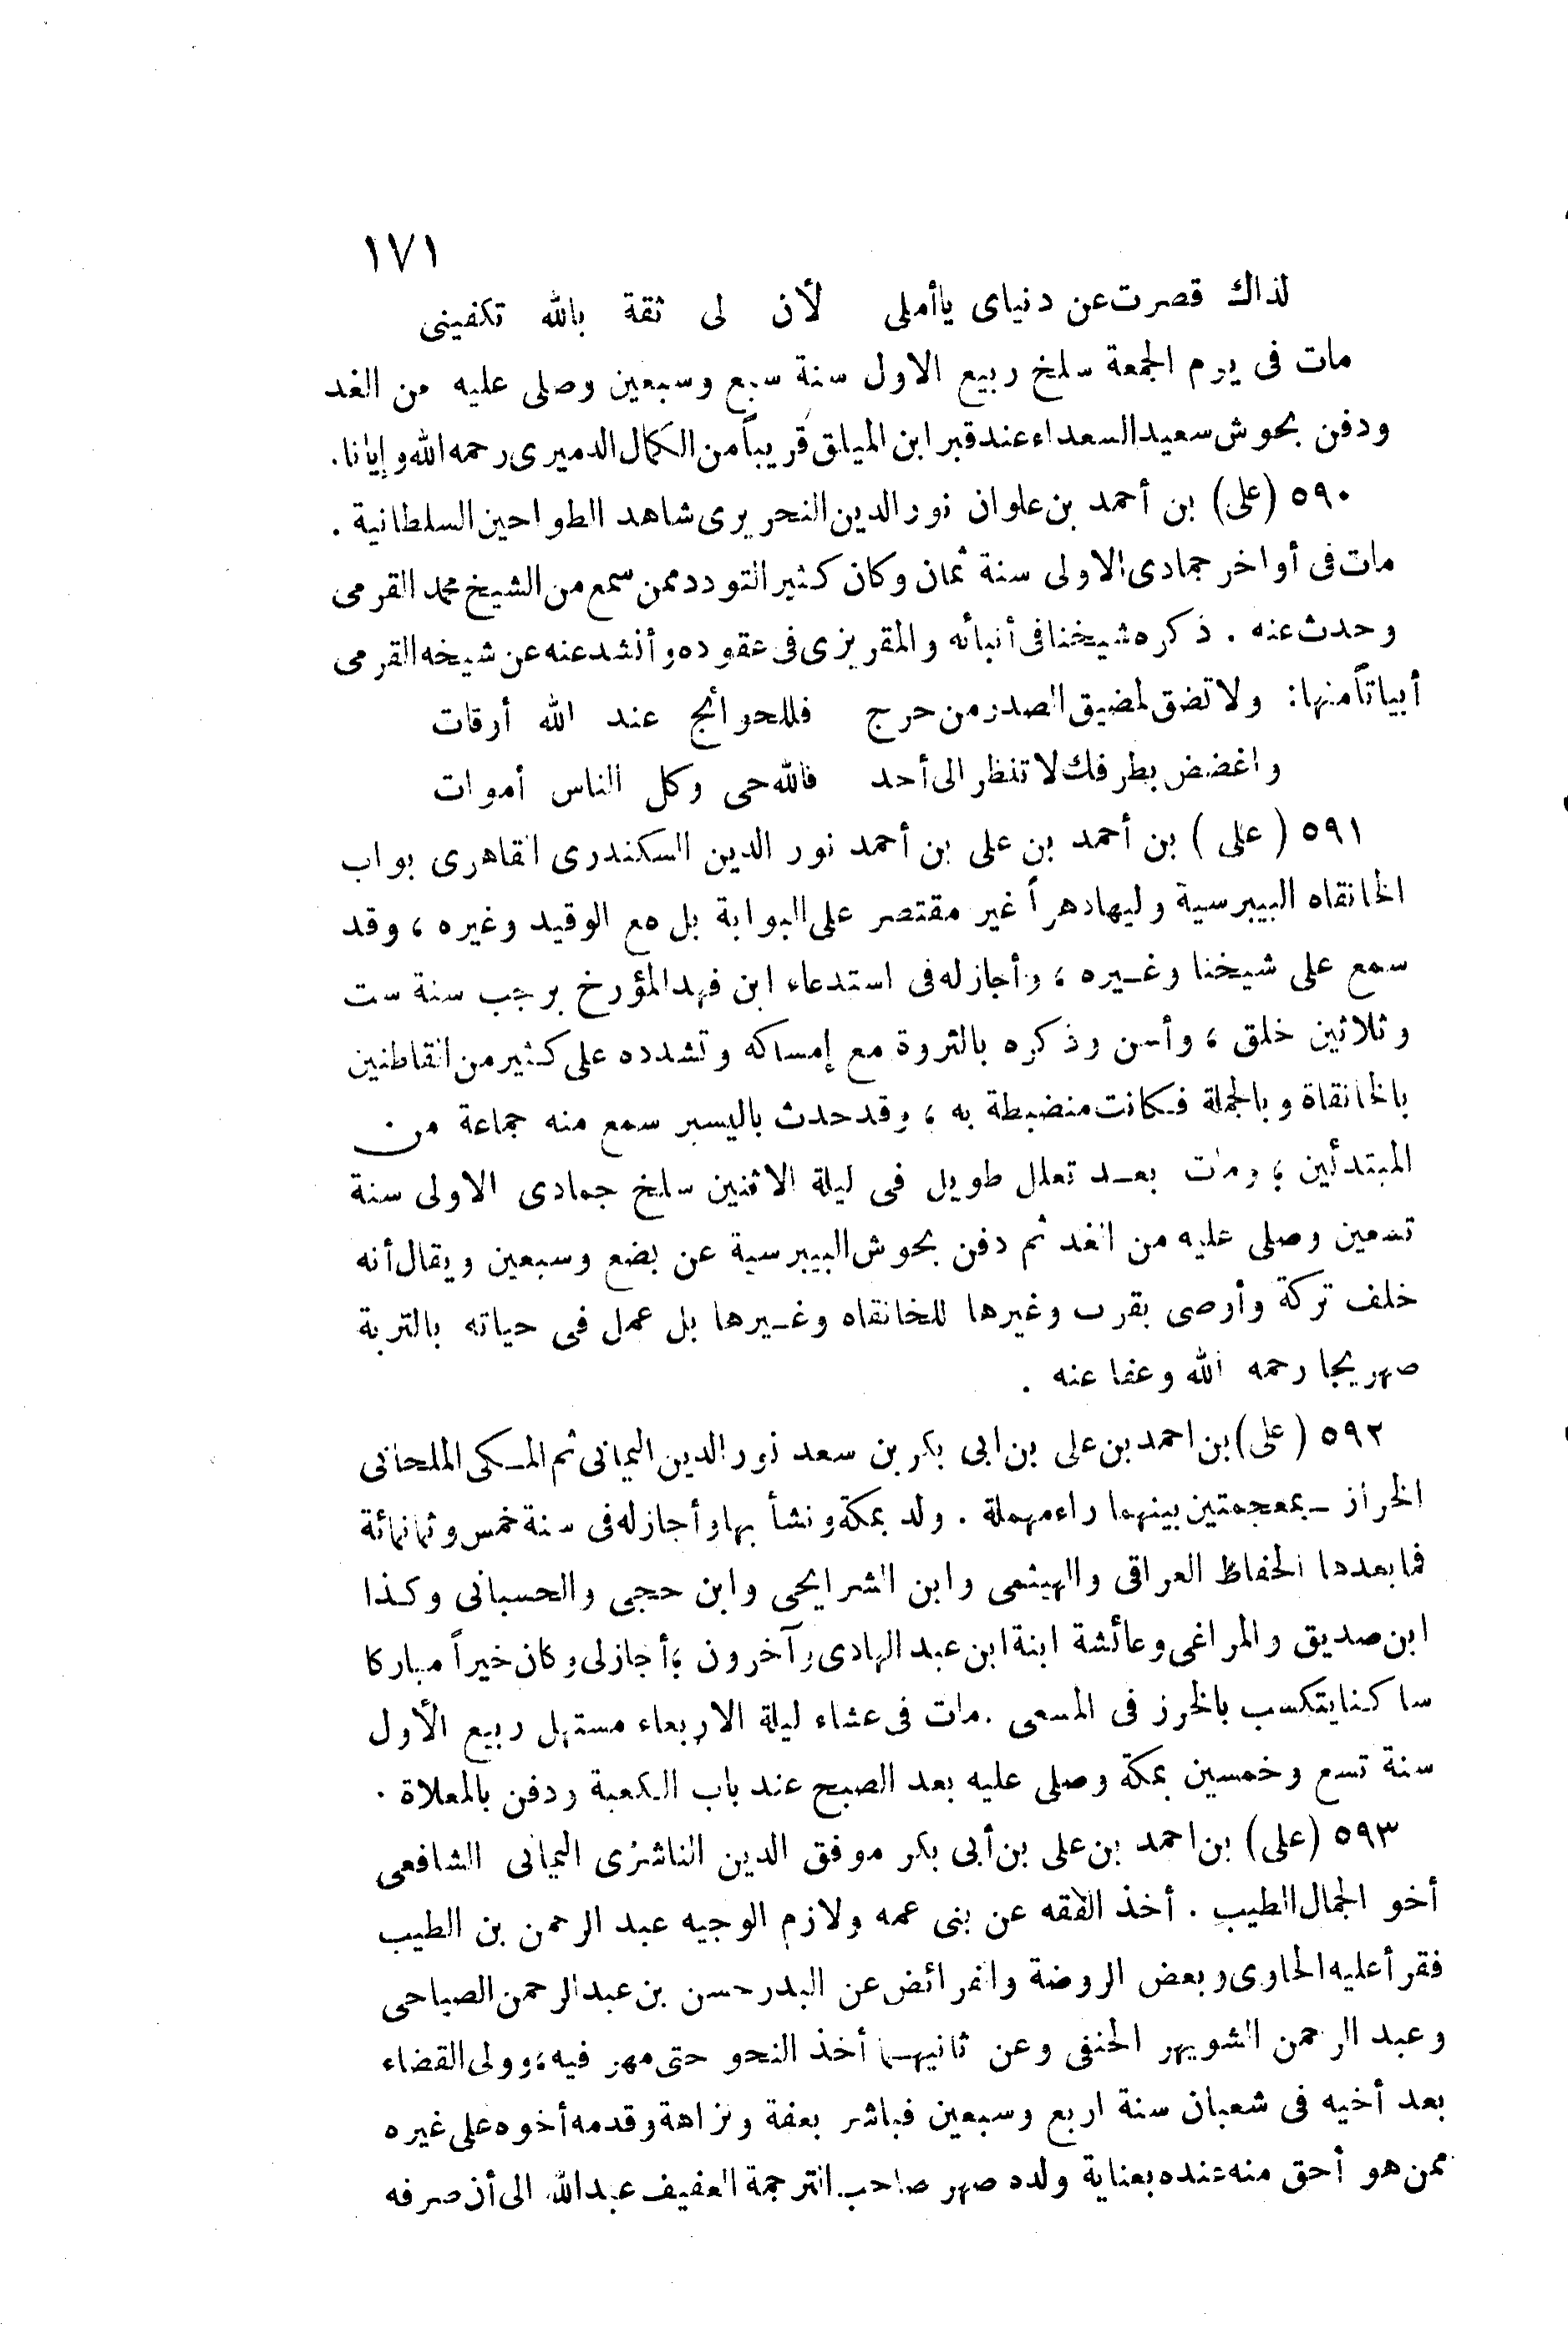 ١٧١
لذاك قصرت عن دنياى يا أملى لأن لى ثقة بالله تكفينى
مات فى يوم الجمعة سلخ ربيع الاول سنة سبع وسبعين وصلى عليه من الغد
ودفن بحوش سعيد السعداء عند قبر ابن الميلق قريباً من الكمال الدميرى رحمه الله وإيانا.
٥٩٠ (على) بن أحمد بن علوان نور الدين النحريرى شاهد الطواحين السلطانية .
مات فى أواخر جمادى الاولى سنة ثمان وكان كثير التودد ممن سمع من الشيخ محمد القرمى
وحدث عنه . ذكره شيخنا فى أنبائه والمقريزى فى عقوده وأنشد عنه عن شيخه القرمى
أبياتاً منها: ولا تضق لمضيق الصدر من حرج فللحوائج عند الله أوقات
واغضض بطرفك لا تنظر الى أحد فالله حى وكل الناس أموات
٥٩١ (على) بن أحمد بن على بن أحمد نور الدين السكندرى القاهرى بواب
الخانقاه البيبرسية وليها دهراً غير مقتصر على البوابة بل مع الوقيد وغيره ، وقد
سمع على شيخنا وغيره ، وأجاز له فى استدعاء ابن فهد المؤرخ برجب سنة ست
وثلاثين خلق ، وأسن وذكره بالثروة مع إمساكه وتشدده على كثير من القاطنين
بالخانقاة وبالجملة فكانت منضبطة به ، وقد حدث باليسير سمع منه جماعة من
المبتدئين ، ومات بعد تعلل طويل فى ليلة الاثنين سلخ جمادى الاولى سنة
تسعين وصلى عليه من الغد ثم دفن بحوش البيبرسية عن بضع وسبعين ويقال أنه
خلف تركة وأوصى بقرب وغيرها للخانقاه وغيرها بل عمل فى حياته بالتربة
صهريجا رحمه الله وعفا عنه .
٥٩٢ (على) بن احمد بن على بن ابى بكر بن سعد نور الدين اليمانى ثم المكى الملحانى
الخراز - بمعجمتين بينهما راء مهملة . ولد بمكة ونشأ بها وأجاز له فى سنة خمس وثمانمائة
فما بعدها الحفاظ العراقى والهيثمى وابن الشرايحى وابن حجى والحسبانى وكذا
ابن صديق والمراغى وعائشة ابنة ابن عبد الهادى وآخرون ، أجاز لى وكان خيراً مباركا
ساكنا يتكسب بالخرز فى المسعى . مات فى عشاء ليلة الاربعاء مستهل ربيع الأول
سنة تسع وخمسين بمكة وصلى عليه بعد الصبح عند باب الكعبة ودفن بالمعلاة .
٥٩٣ (على) بن احمد بن على بن أبى بكر موفق الدين الناشرى اليمانى الشافعى
أخو الجمال الطيب . أخذ الفقه عن بنى عمه ولازم الوجيه عبد الرحمن بن الطيب
فقرأ عليه الحاوى وبعض الروضة والفرائض عن البدر حسن بن عبد الرحمن الصباحى
وعبد الرحمن الشويهر الحنفى وعن ثانيهما أخذ النحو حتى مهر فيه ، وولى القضاء
بعد أخيه فى شعبان سنة اربع وسبعين فباشر بعفة ونزاهة وقدمه أخوه على غيره
ممن هو أحق منه عنده بعناية ولده صهر صاحب الترجمة العفيف عبد الله الى أن صرفه